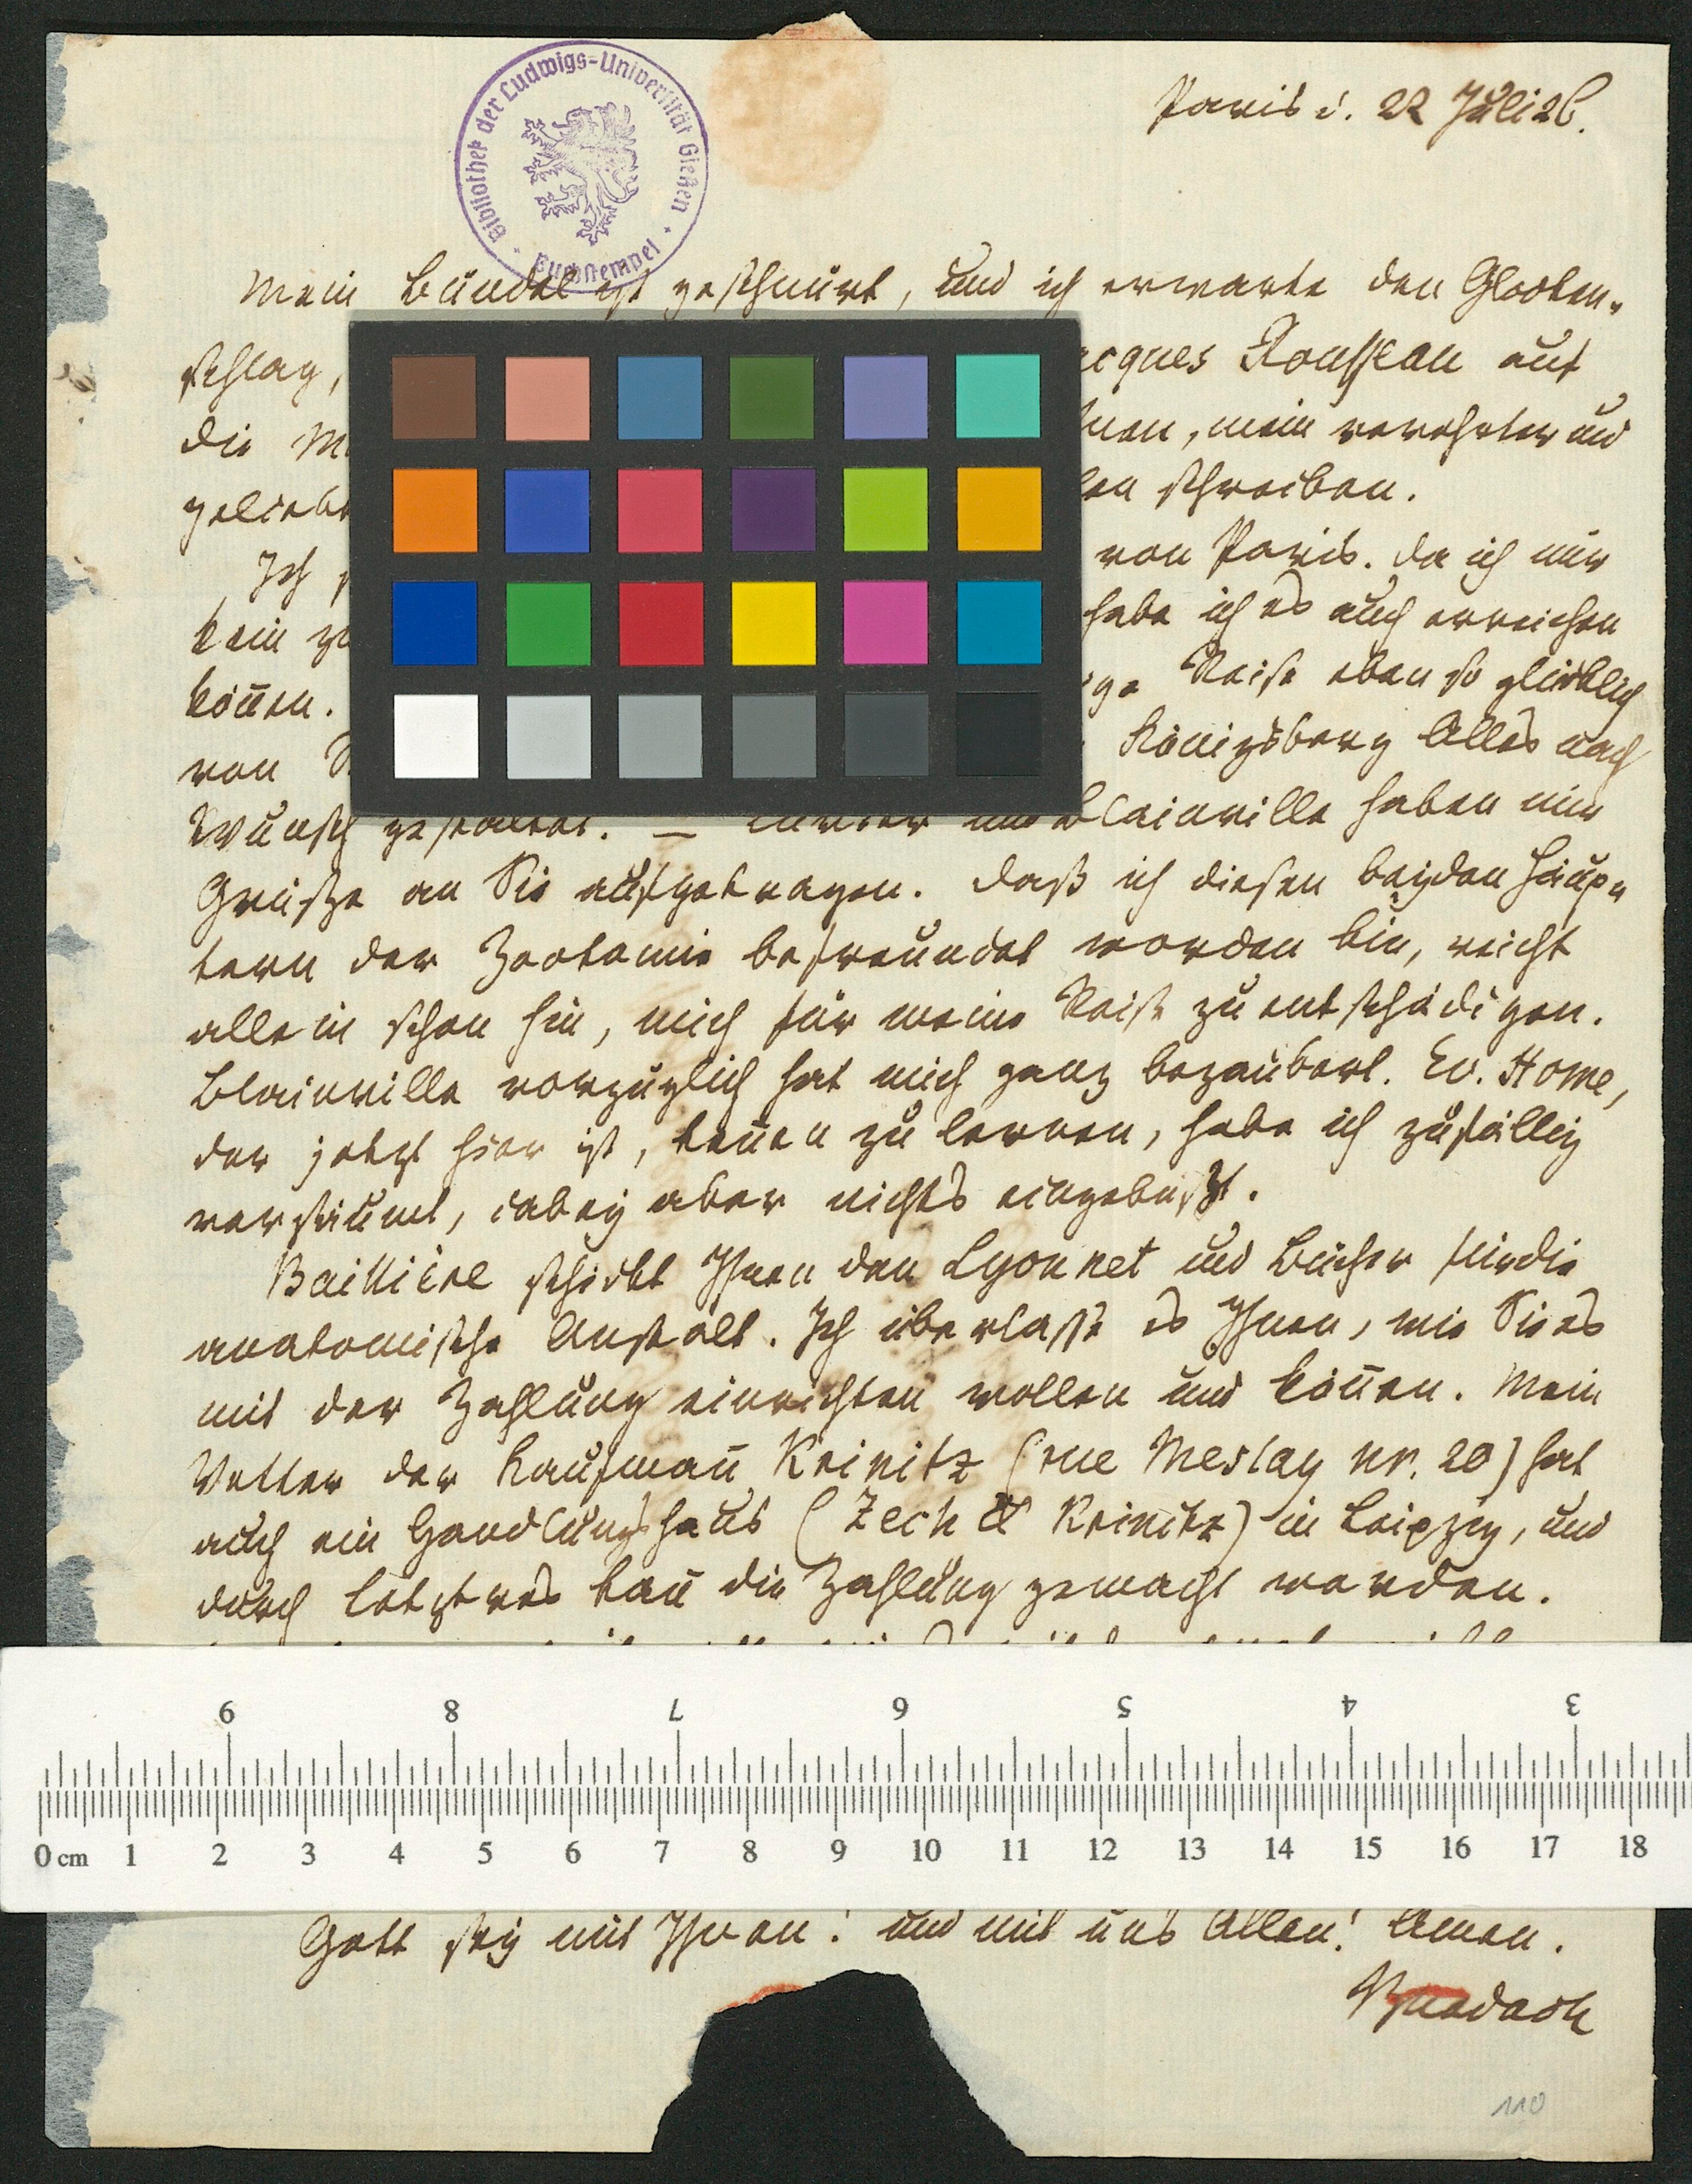 Paris d. 22 Juli 26.
Bibliothek der Ludwigs-Universität Gießen
Buchstempel
Mein Bündel ist geschnürt, und ich erwarte den Glocken-
schlag,
acques Rousseau auf
die
nen, mein verehrter und
geliebt
schreiben.
Ich
von Paris. Da ich mir
kein
habe ich es auch erreichen
kön̄en.
Reise eben so glücklich
von
Königsberg Alles nach
Wunsch gestaltet. — Cuvier und Blainville haben mir
Grüße an Sie aufgetragen. Daß ich diesen beyden Häup-
tern der Zootomie befreundet worden bin, reicht
allein schon hin, mich für meine Reise zu entschädigen.
Blainville vorzüglich hat mich ganz bezaubert. Ev. Home,
der jetzt hier ist, ken̄en zu lernen, habe ich zufällig
versäumt, dabey aber nichts eingebüßt.
Baillière schickt Ihnen den Lyonnet und Bücher für die
anatomische Anstalt. Ich überlasse es Ihnen, wie Sie es
mit der Zahlung einrichten wollen und kön̄en. Mein
Vetter der Kaufman̄ Krinitz (rue Meslay nr. 20) hat
auch ein Handlungshaus (Zech & Krinitz) in Leipzig, und
durch letztres kan̄ die Zahlung gemacht werden.
9 8 7 6 5 4 3
0 cm 1 2 3 4 5 6 7 8 9 10 11 12 13 14 15 16 17 18
Gott sey mit Ihnen! und mit uns Allen! Amen.
Burdach
110